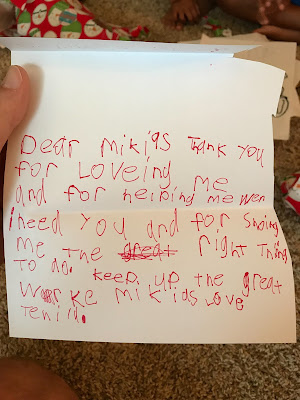 Dear mikias Thank you
for Loveing me
and for helping me wen
i need you and for shoing
me the great right Thing
To do. keep up the great
Worke mikids Love
Tenid.